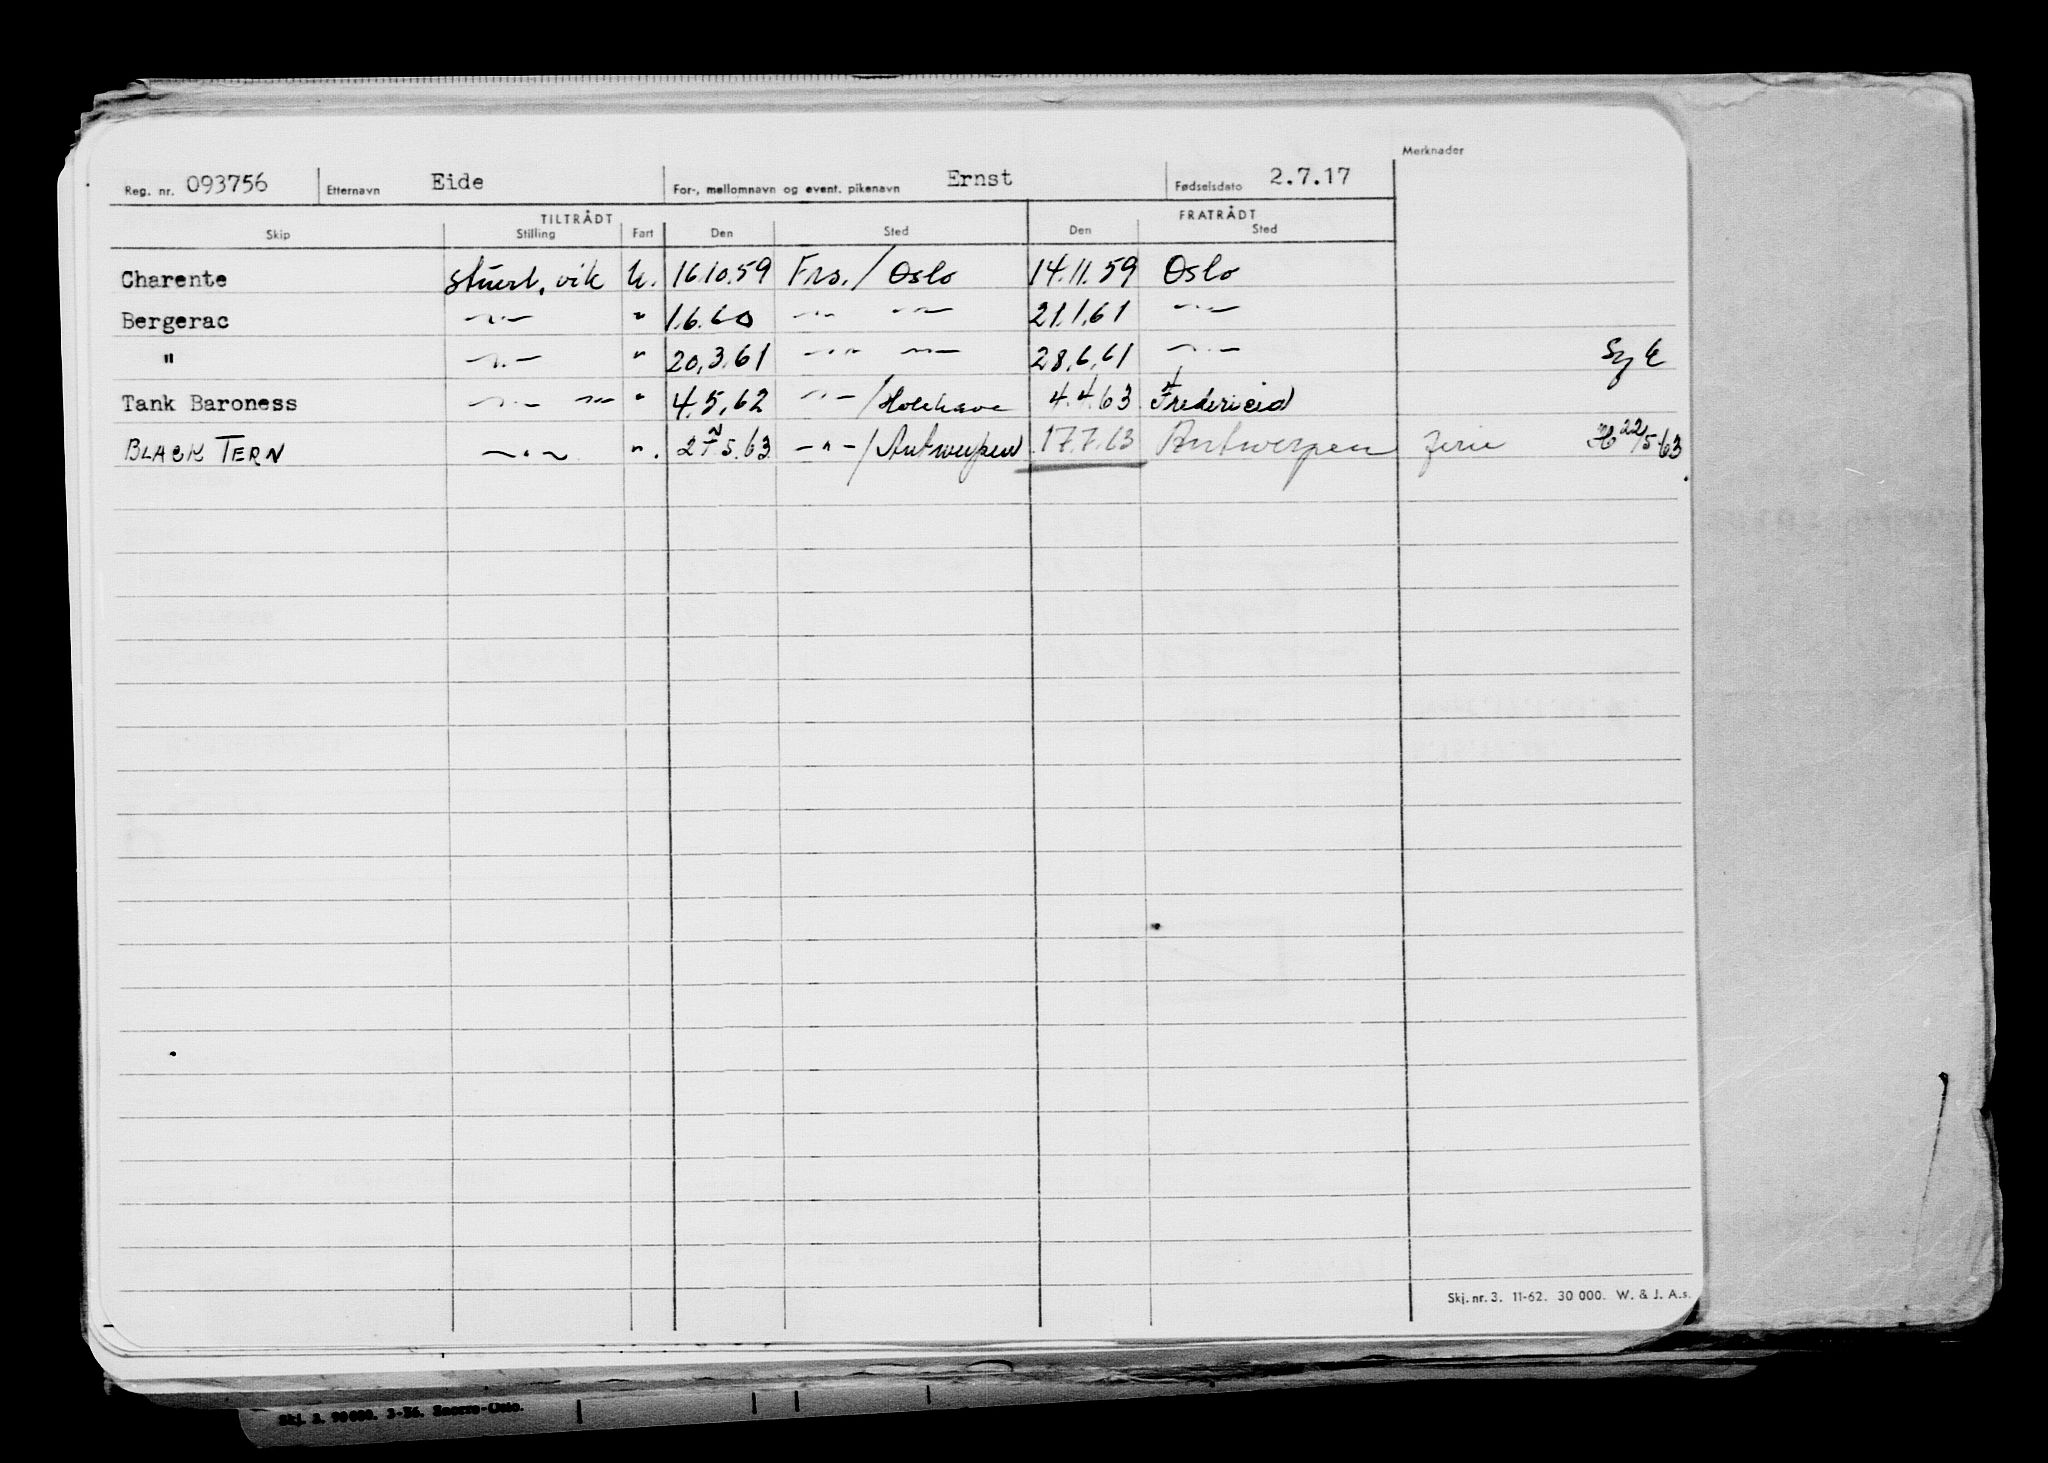 Merknader
Reg. nr. 093756 Etternavn Eide For-, mellomnavn og event. pikenavn Ernst Fødselsdato 2.7.17
TILTRÅDT FRATRÅDT
Skip Stilling Fart Den Sted Den Sted
Charente stuert, vik U. 16.10.59 Fra./Oslo 14.11.59 Oslo
Bergerac -"- " 1.6.60 -"- -"- 21.1.61 -"-
" -"- " 20.3.61 -"- -"- 28.6.61 -"- Syk
Tank Baroness -"- -"- " 4.5.62 -"-/Holehave 4.4.63 Fredericia
BLACK TERN -"- ". 5.63 -"-/Antwerpen 17.7.63 Antwerpen ferie 22/5-63
Skj. nr. 3. 11-62. 30 000. W. & J. A.s.
Skj. 3. 90 000. 3-56. Snorre-Oslo.